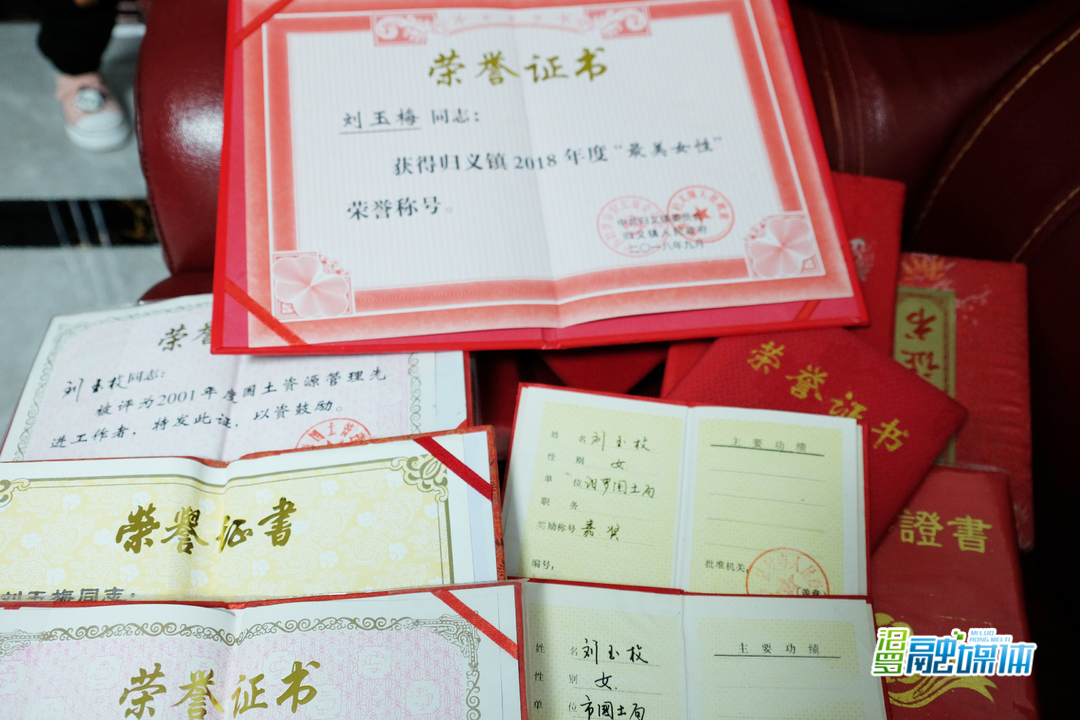 荣誉证书
刘玉梅 同志：
获得归义镇2018年度“最美女性”
荣誉称号。
中共归义镇委员会
归义镇人民政府
二〇一八年九月
荣
刘玉枚同志：
被评为2001年度国土资源管理先
进工作者，特发此证，以资鼓励。
荣誉证书
刘玉梅同志：
荣誉证书
姓名 刘玉枚
性别 女
单位 汨罗国土局
职务
奖励称号 嘉奖
编号：
主要功绩
批准机关：
（盖章）
姓名 刘玉枚
性别 女
单位 市国土局
主要功绩
荣誉证书
证书
證書
汨罗融媒体
MI LUO
RONG MEI TI